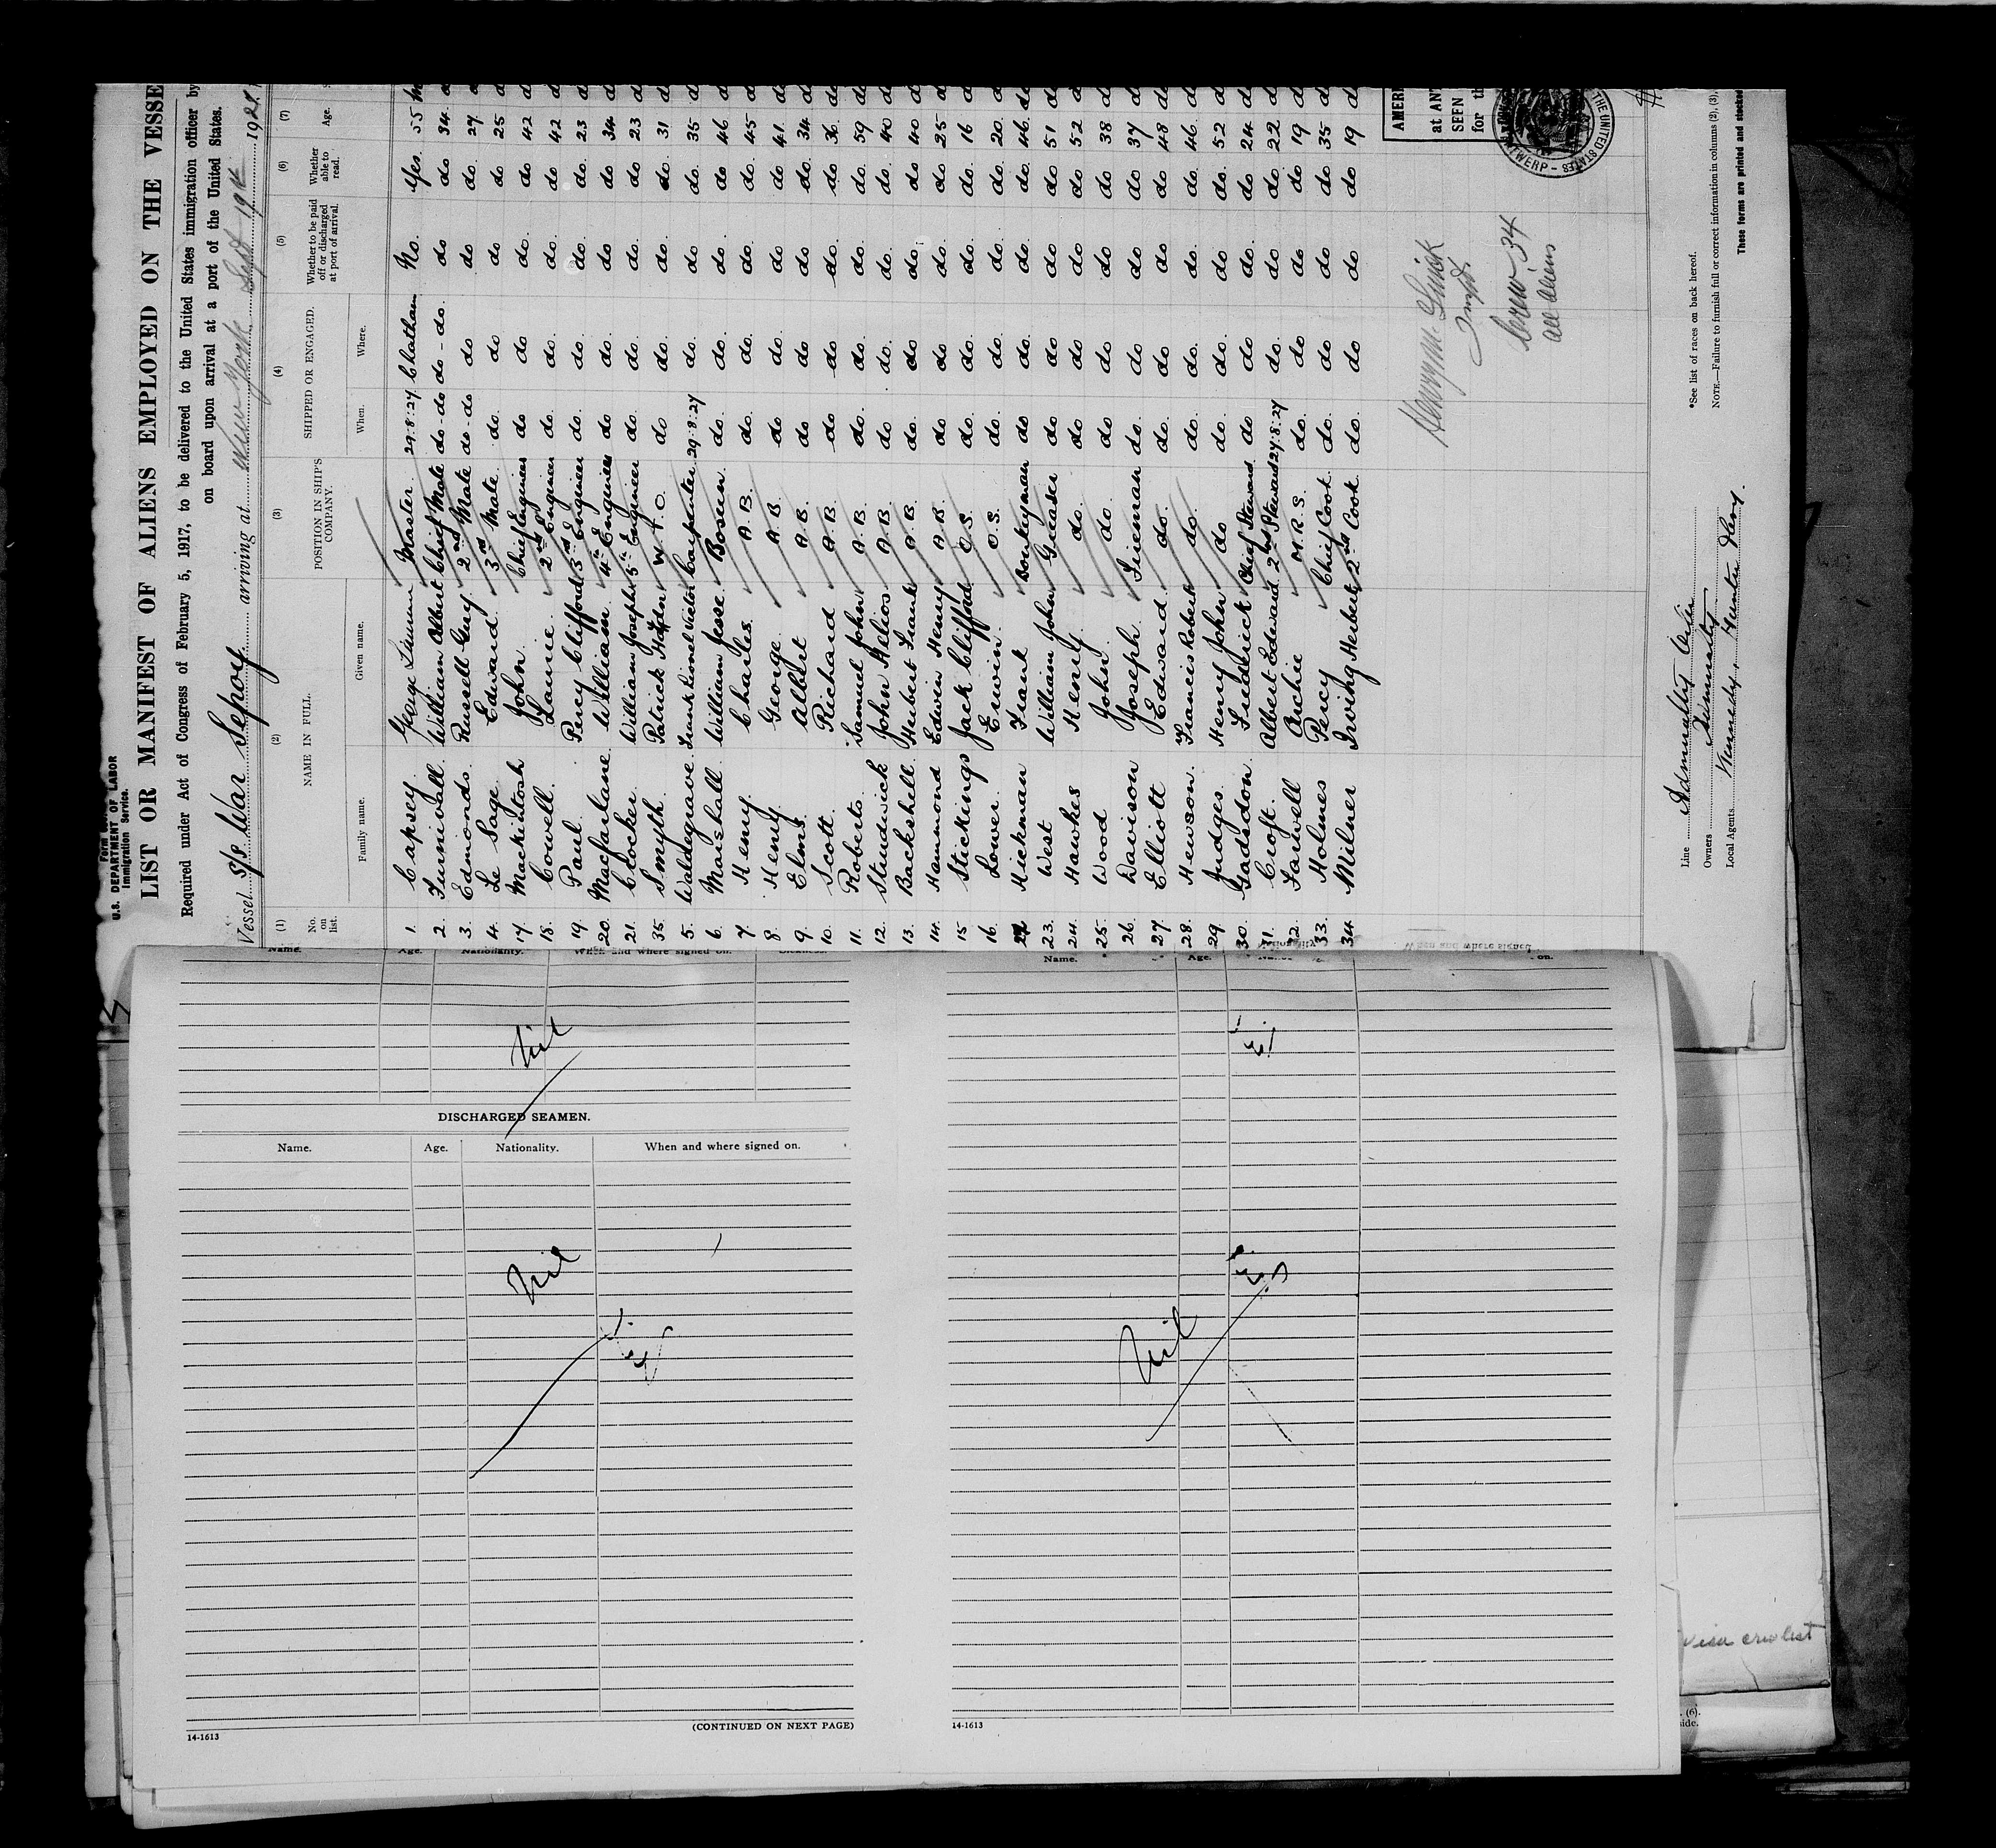 U.S. DEPARTMENT OF LABOR
Immigration Service.
LIST OR MANIFEST OF ALIENS EMPLOYED ON THE VESSE
Required under Act of Congress of February 5, 1917, to be delivered to the United States immigration officer by
on board upon arrival at a port of the United States.
Vessel S/S War Sepoy arriving at New York Sept 19th 192
(1) (2) (3) (4) (5) (6) (7)
No. on list. NAME IN FULL. POSITION IN SHIP'S COMPANY. SHIPPED OR ENGAGED. Whether to be paid off or discharged at port of arrival. Whether able to read. Age.
Family name. Given name. When. Where.
1. Capsey George Master 29.8.27 Chatham No. Yes. 55
2. Furnivall William Albert Chief Mate do-do do-do. do do 34
3. Edmonds. Russell Guy. 2nd Mate do-do do do do. 27
4. Le Sage Edward 3rd Mate do. do do do 25
17. Mackintosh John Chief Engineer do do do. do 42
18. Cowell. 2nd Engineer do. do. do. do 42
19. Paul. Percy Clifford 3rd Engineer do. do. do. do. 23
20. Macfarlane William 4th Engineer do do. do do 34
21. Crocker. William Joseph 5th Engineer do. do. do. do 23
35. Smyth. Patrick W.T.O. do do. do. do. 31
5. Waldegrave Frank Lionel Victor Carpenter 29.8.27 do. do do. 35
6. Marshall William Jesse Bosun do. do. do. do 46
7. Henry Charles A.B. do. do. do. do. 45
8. Henry George A.B. do do. do. do. 41
9. Elms Albert A.B. do do do. do. 34
10. Scott. Richard A.B. do do. do. do 36
11. Roberts. Samuel John A.B. do. do. do. do. 59
12. Studwick John Helios A.B. do do. do. do. 40
13. Backshell. Herbert Frank A.B. do. do do. do 40
14. Hammond Edwin Henry A.B. do do do. do. 25
15 Stickings Jack Clifford O.S. do. do. do. do. 16
16. Lower. Erwin. O.S. do. do. do. do. 20
Hickman Frank Donkeyman do do. do. do. 46
23. West William John Greaser do. do do. do 51
24. Hawkes Henry. do. do do do. do 52
25. Wood John. do do do do. do 38
26. Davison Joseph. Fireman do. do do. do 37
27. Elliott Edward. do. do. do do do 48
28. Hewson. Francis Robert do. do. do. do. do. 46
29. Judges. Henry John do do. do. do do. 52
30. Gadsdon. Frederick Chief Steward. do do do. do 24
31. Croft. Albert Edward 2nd Steward 27.8.27 do. do. do. 22
32. Archie M.R.S. do. do do do 19
33. Holmes Percy Chief Cook. do. do do do 35
34 Milner Irving Herbert 2nd Cook. do. do do do 19
AMERI
at ANT
SEEN
for th
TWERP - THE UNITED STATES
Crew 34
all aliens
Line
Owners Admiralty
Local Agents Kennedy, Hunter
*See list of races on back hereof.
NOTE.—Failure to furnish full or correct information in columns (2), (3),
These forms are printed and stocked
Name. Age. Nationality. When and where signed on.
Nil
DISCHARGED SEAMEN.
Name. Age. Nationality. When and where signed on.
Nil
(CONTINUED ON NEXT PAGE)
14-1613
Name. Age.
Nil
14-1613
visa crew list
(6).
side.